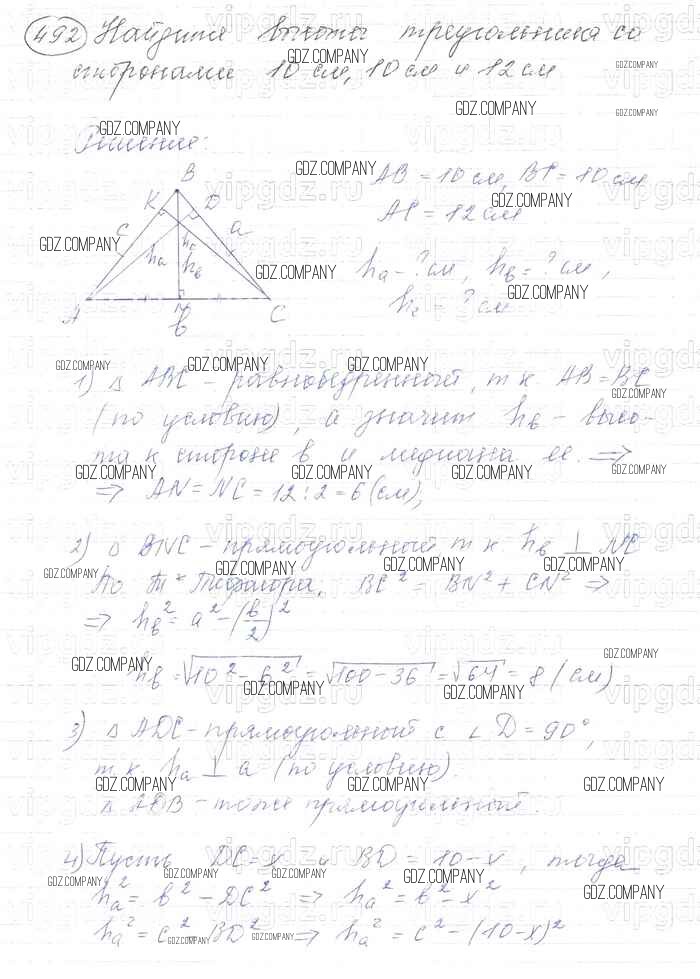 492 Найдите высоты треугольника со
сторонами 10 см, 10 см и 12 см
Решение:
B
K D
c a
ha hc hb
A N C
b
AB = 10 см, BC = 10 см
AC = 12 см
ha - ? см, hb = ? см,
hc - ? см
1) Δ ABC - равнобедренный, т к AB = BC
(по условию), а значит hb - высо-
та к стороне b и медиана ее. ⇒
⇒ AN = NC = 12 : 2 = 6 (см),
2) Δ BNC - прямоугольный т к hb ⊥ NC
По т. Пифагора, BC² = BN² + CN² ⇒
⇒ hb² = a² - (b/2)²
hb = √10² - 6² = √100 - 36 = √64 = 8 (см)
3) Δ ADC - прямоугольный с ∠ D = 90°,
т к ha ⊥ a (по условию).
Δ ADB - тоже прямоугольный.
4) Пусть DC = x и BD = 10 - x, тогда
ha² = b² - DC² ⇒ ha² = b² - x²
ha² = c² - BD² ⇒ ha² = c² - (10 - x)²
GDZ.COMPANY
vipgdz.ru